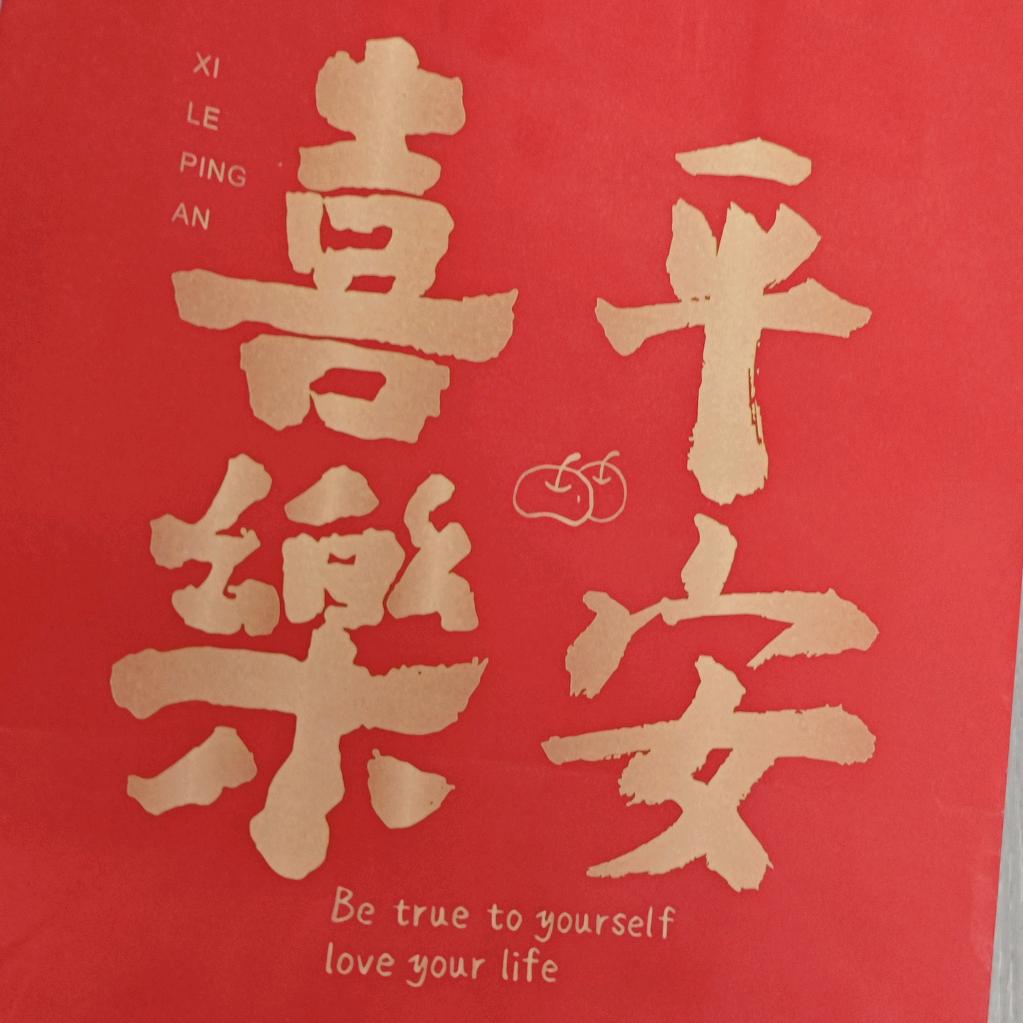 XI
LE
PING
AN
喜樂
平安
Be true to yourself
love your life